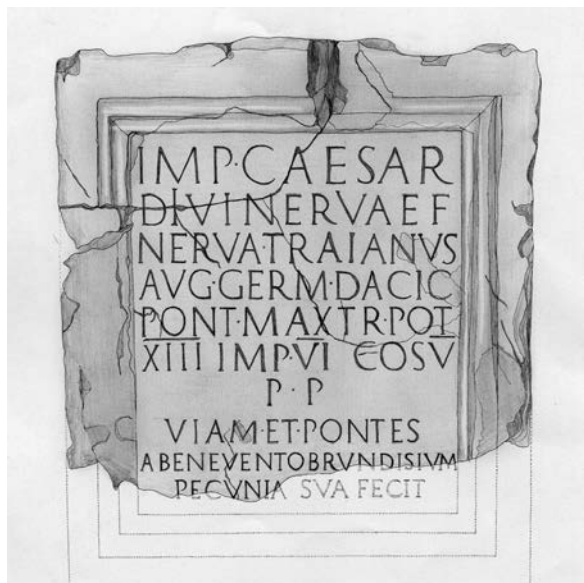 IMP·CAESAR
DIVI NERVAE F
NERVA·TRAIANVS
AVG·GERM·DACIC
PONT·MAX TR·POT
XIIII IMP·VI COS V
P·P
VIAM·ET·PONTES
A BENEVENTO BRVNDISIVM
PECVNIA SVA FECIT